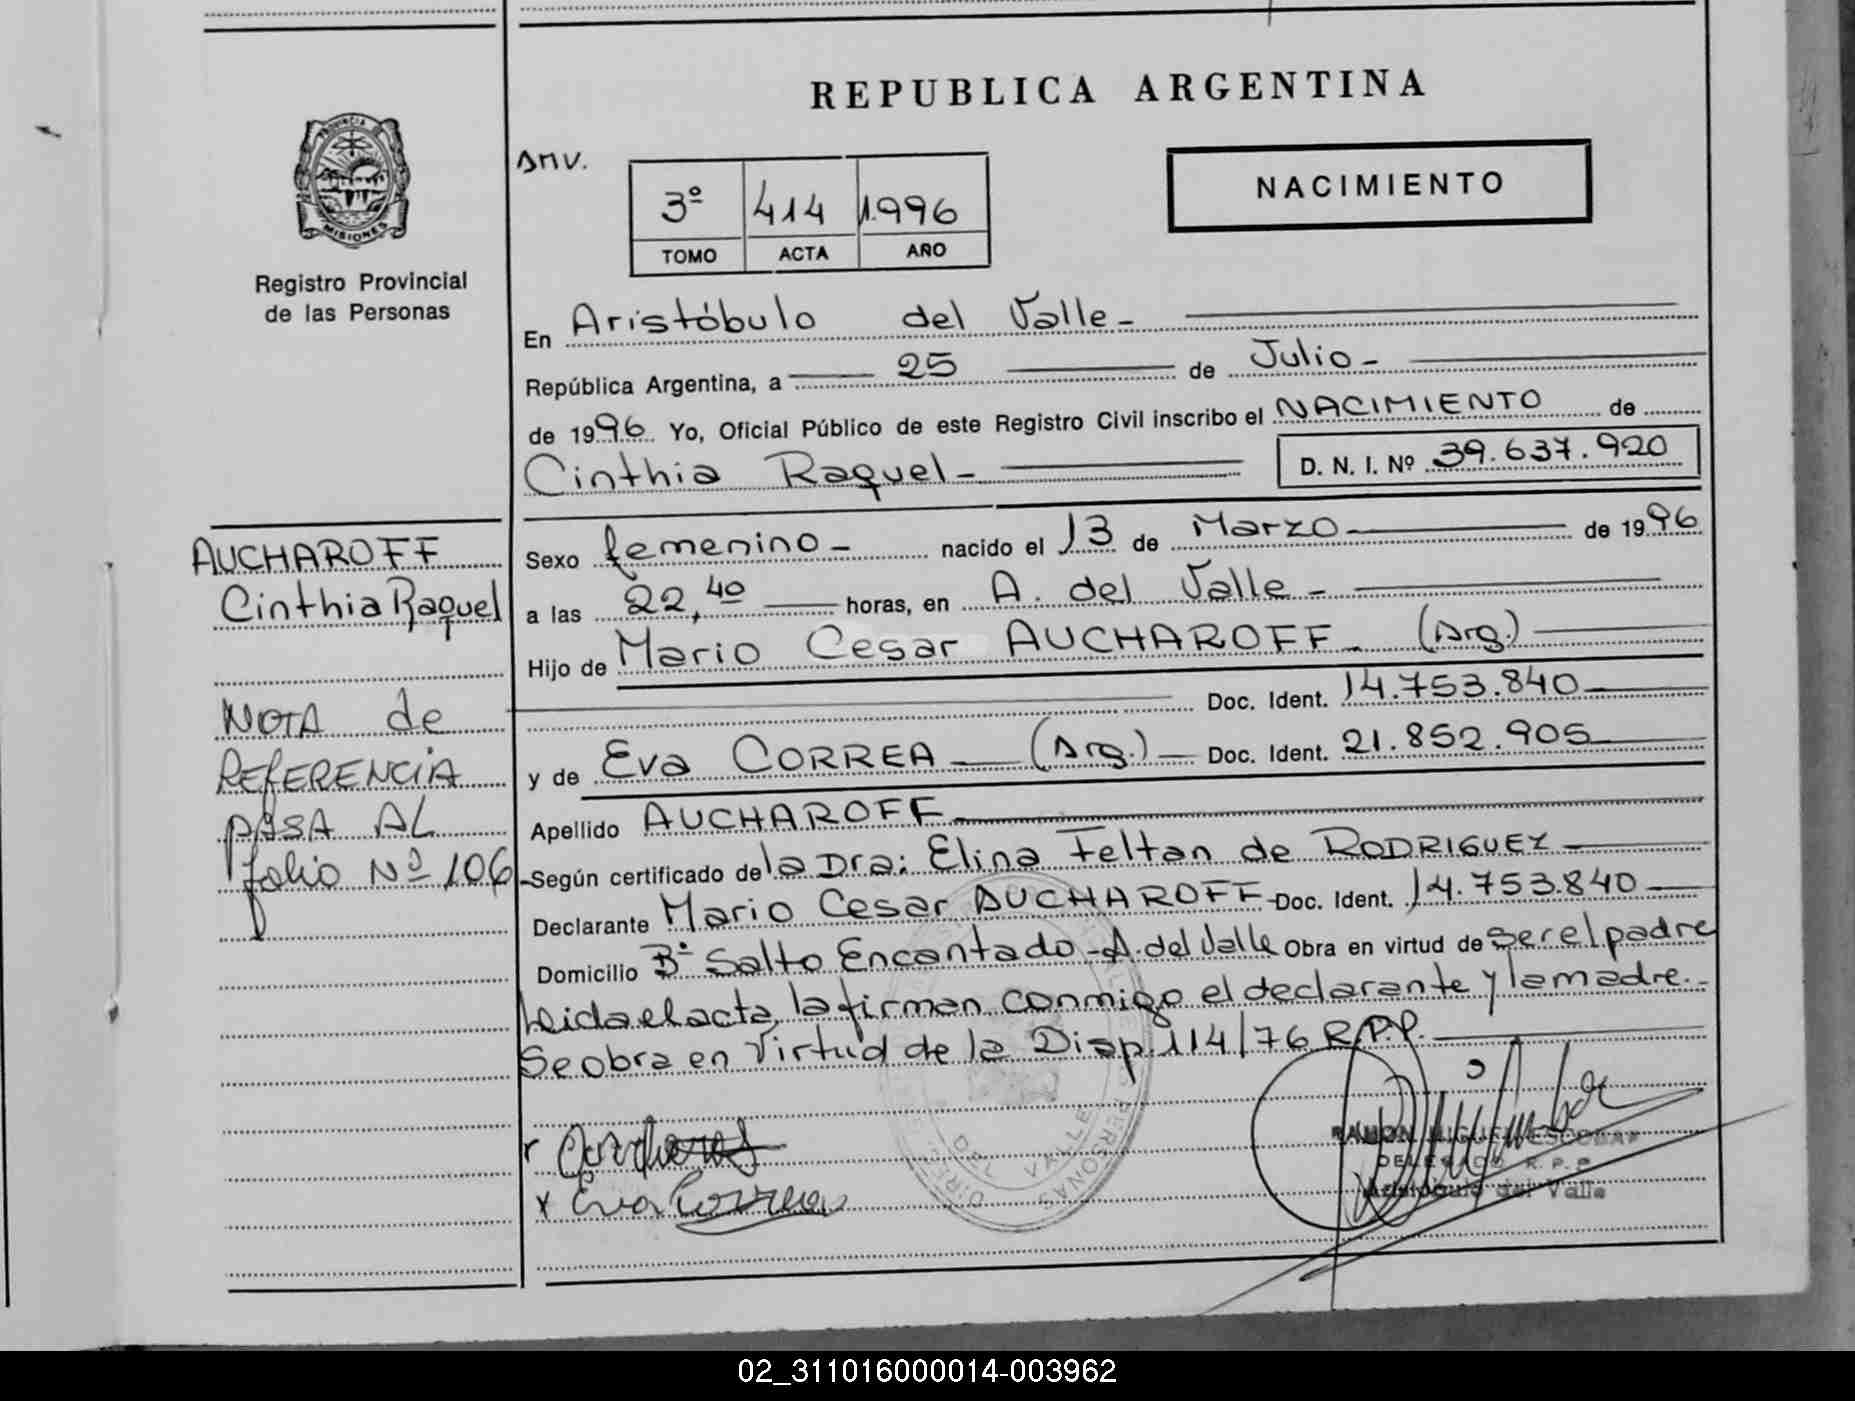 REPUBLICA ARGENTINA
PROVINCIA DE
MISIONES
Registro Provincial
de las Personas
DMV.
3º 414 1.996
TOMO ACTA AÑO
NACIMIENTO
En Aristóbulo del Valle -
República Argentina, a 25 de Julio -
de 1996 Yo, Oficial Público de este Registro Civil inscribo el NACIMIENTO de
Cinthia Raquel - D. N. I. Nº 39.637.920
AUCHAROFF
Cinthia Raquel
NOTA de
REFERENCIA
PASA AL
folio Nº 106
Sexo femenino - nacido el 13 de Marzo de 1996
a las 22,40 horas, en A. del Valle -
Hijo de Mario Cesar AUCHAROFF - (Arg.)
Doc. Ident. 14.753.840
y de Eva CORREA (Arg.) Doc. Ident. 21.852.905
Apellido AUCHAROFF
Según certificado de la Dra: Elina Feltan de RODRIGUEZ
Declarante Mario Cesar AUCHAROFF - Doc. Ident. 14.753.840
Domicilio Bº Salto Encantado - A. del Valle Obra en virtud de ser el padre
Leida el acta, la firman conmigo el declarante y la madre. -
Se obra en Virtud de la Disp. 114/76 R.P.P.
x Eva Correa
DEL VALLE
PERSONAS
RAMON MIGUEL ESCOBAR
DELEGADO R. P. P.
Aristóbulo del Valle
02_311016000014-003962